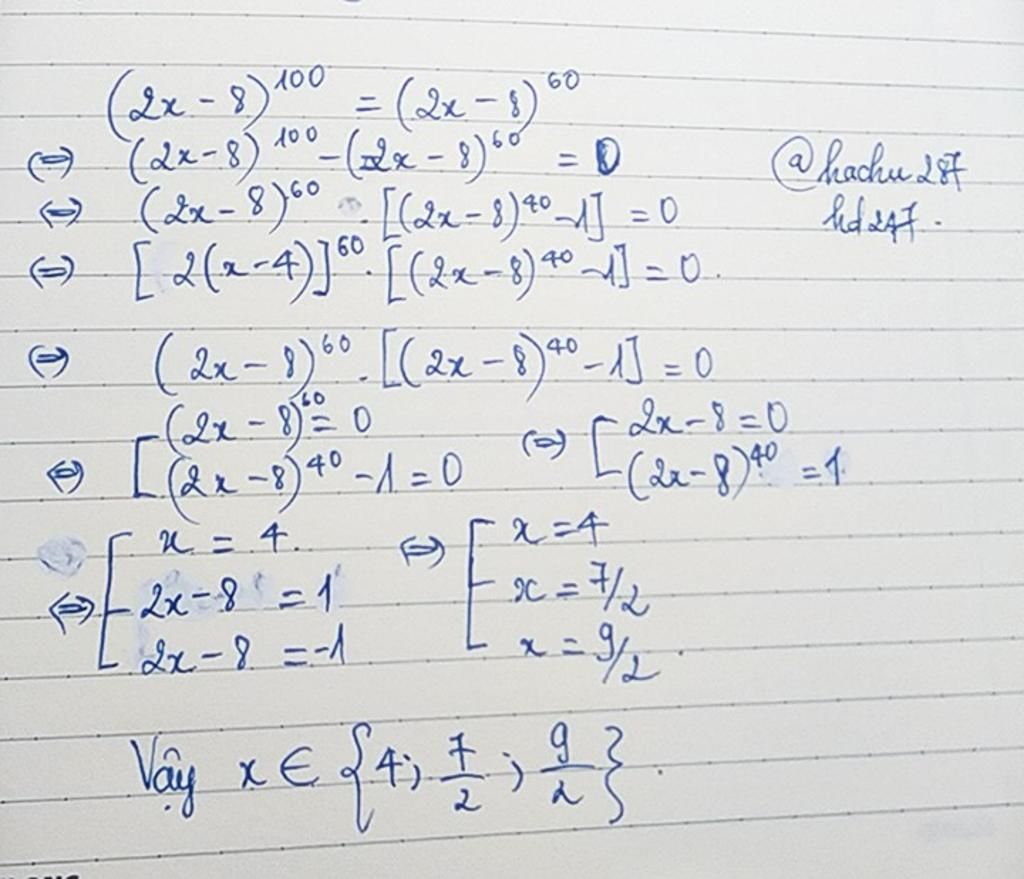 (2x-8)^100 = (2x-8)^60
⇔ (2x-8)^100 - (2x-8)^60 = 0
@hachu287
⇔ (2x-8)^60 . [(2x-8)^40 -1] = 0
hd247.
⇔ [2(x-4)]^60 . [(2x-8)^40 -1] = 0.
⇔ (2x-8)^60 . [(2x-8)^40 -1] = 0
(2x-8)^60 = 0 ⇔ [ 2x-8 = 0
⇔ [ (2x-8)^40 -1 = 0 (2x-8)^40 = 1
x = 4. ⇔ [ x = 4
⇔ [ 2x-8 = 1 x = 7/2
2x-8 = -1 x = 9/2.
Vậy x ∈ {4; 7/2; 9/2}.